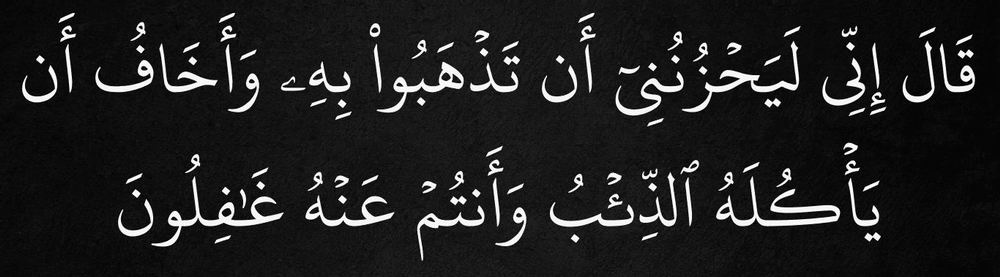 قَالَ إِنِّى لَيَحْزُنُنِىٓ أَن تَذْهَبُوا۟ بِهِۦ وَأَخَافُ أَن
يَأْكُلَهُ ٱلذِّئْبُ وَأَنتُمْ عَنْهُ غَـٰفِلُونَ